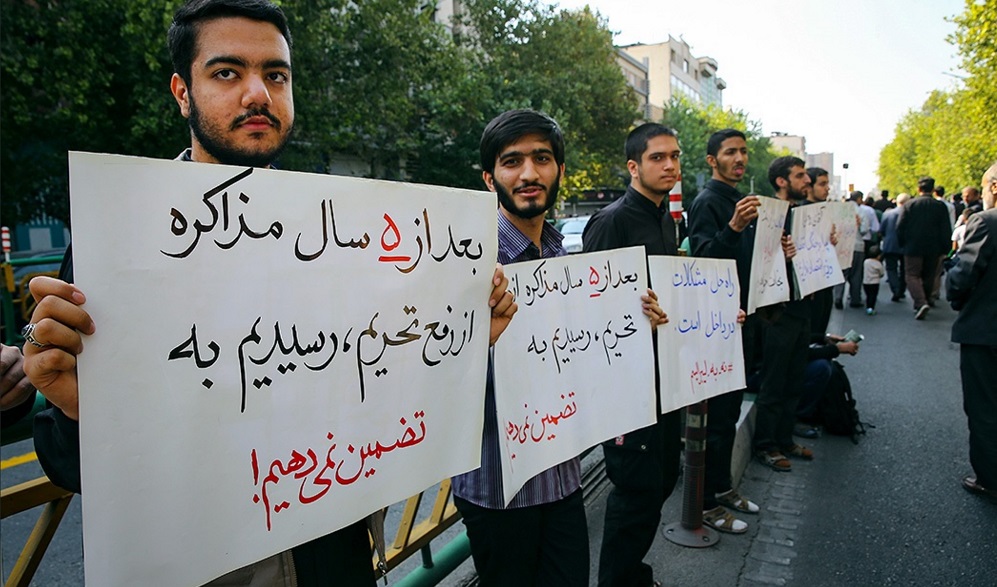 بعد از ۵ سال مذاکره
از رفع تحریم، رسیدیم به
تضمین نمی‌دهیم!
بعد از ۵ سال مذاکره از
تحریم، رسیدیم به
تضمین نمی‌دهیم
راه حل مشکلات
در داخل است.